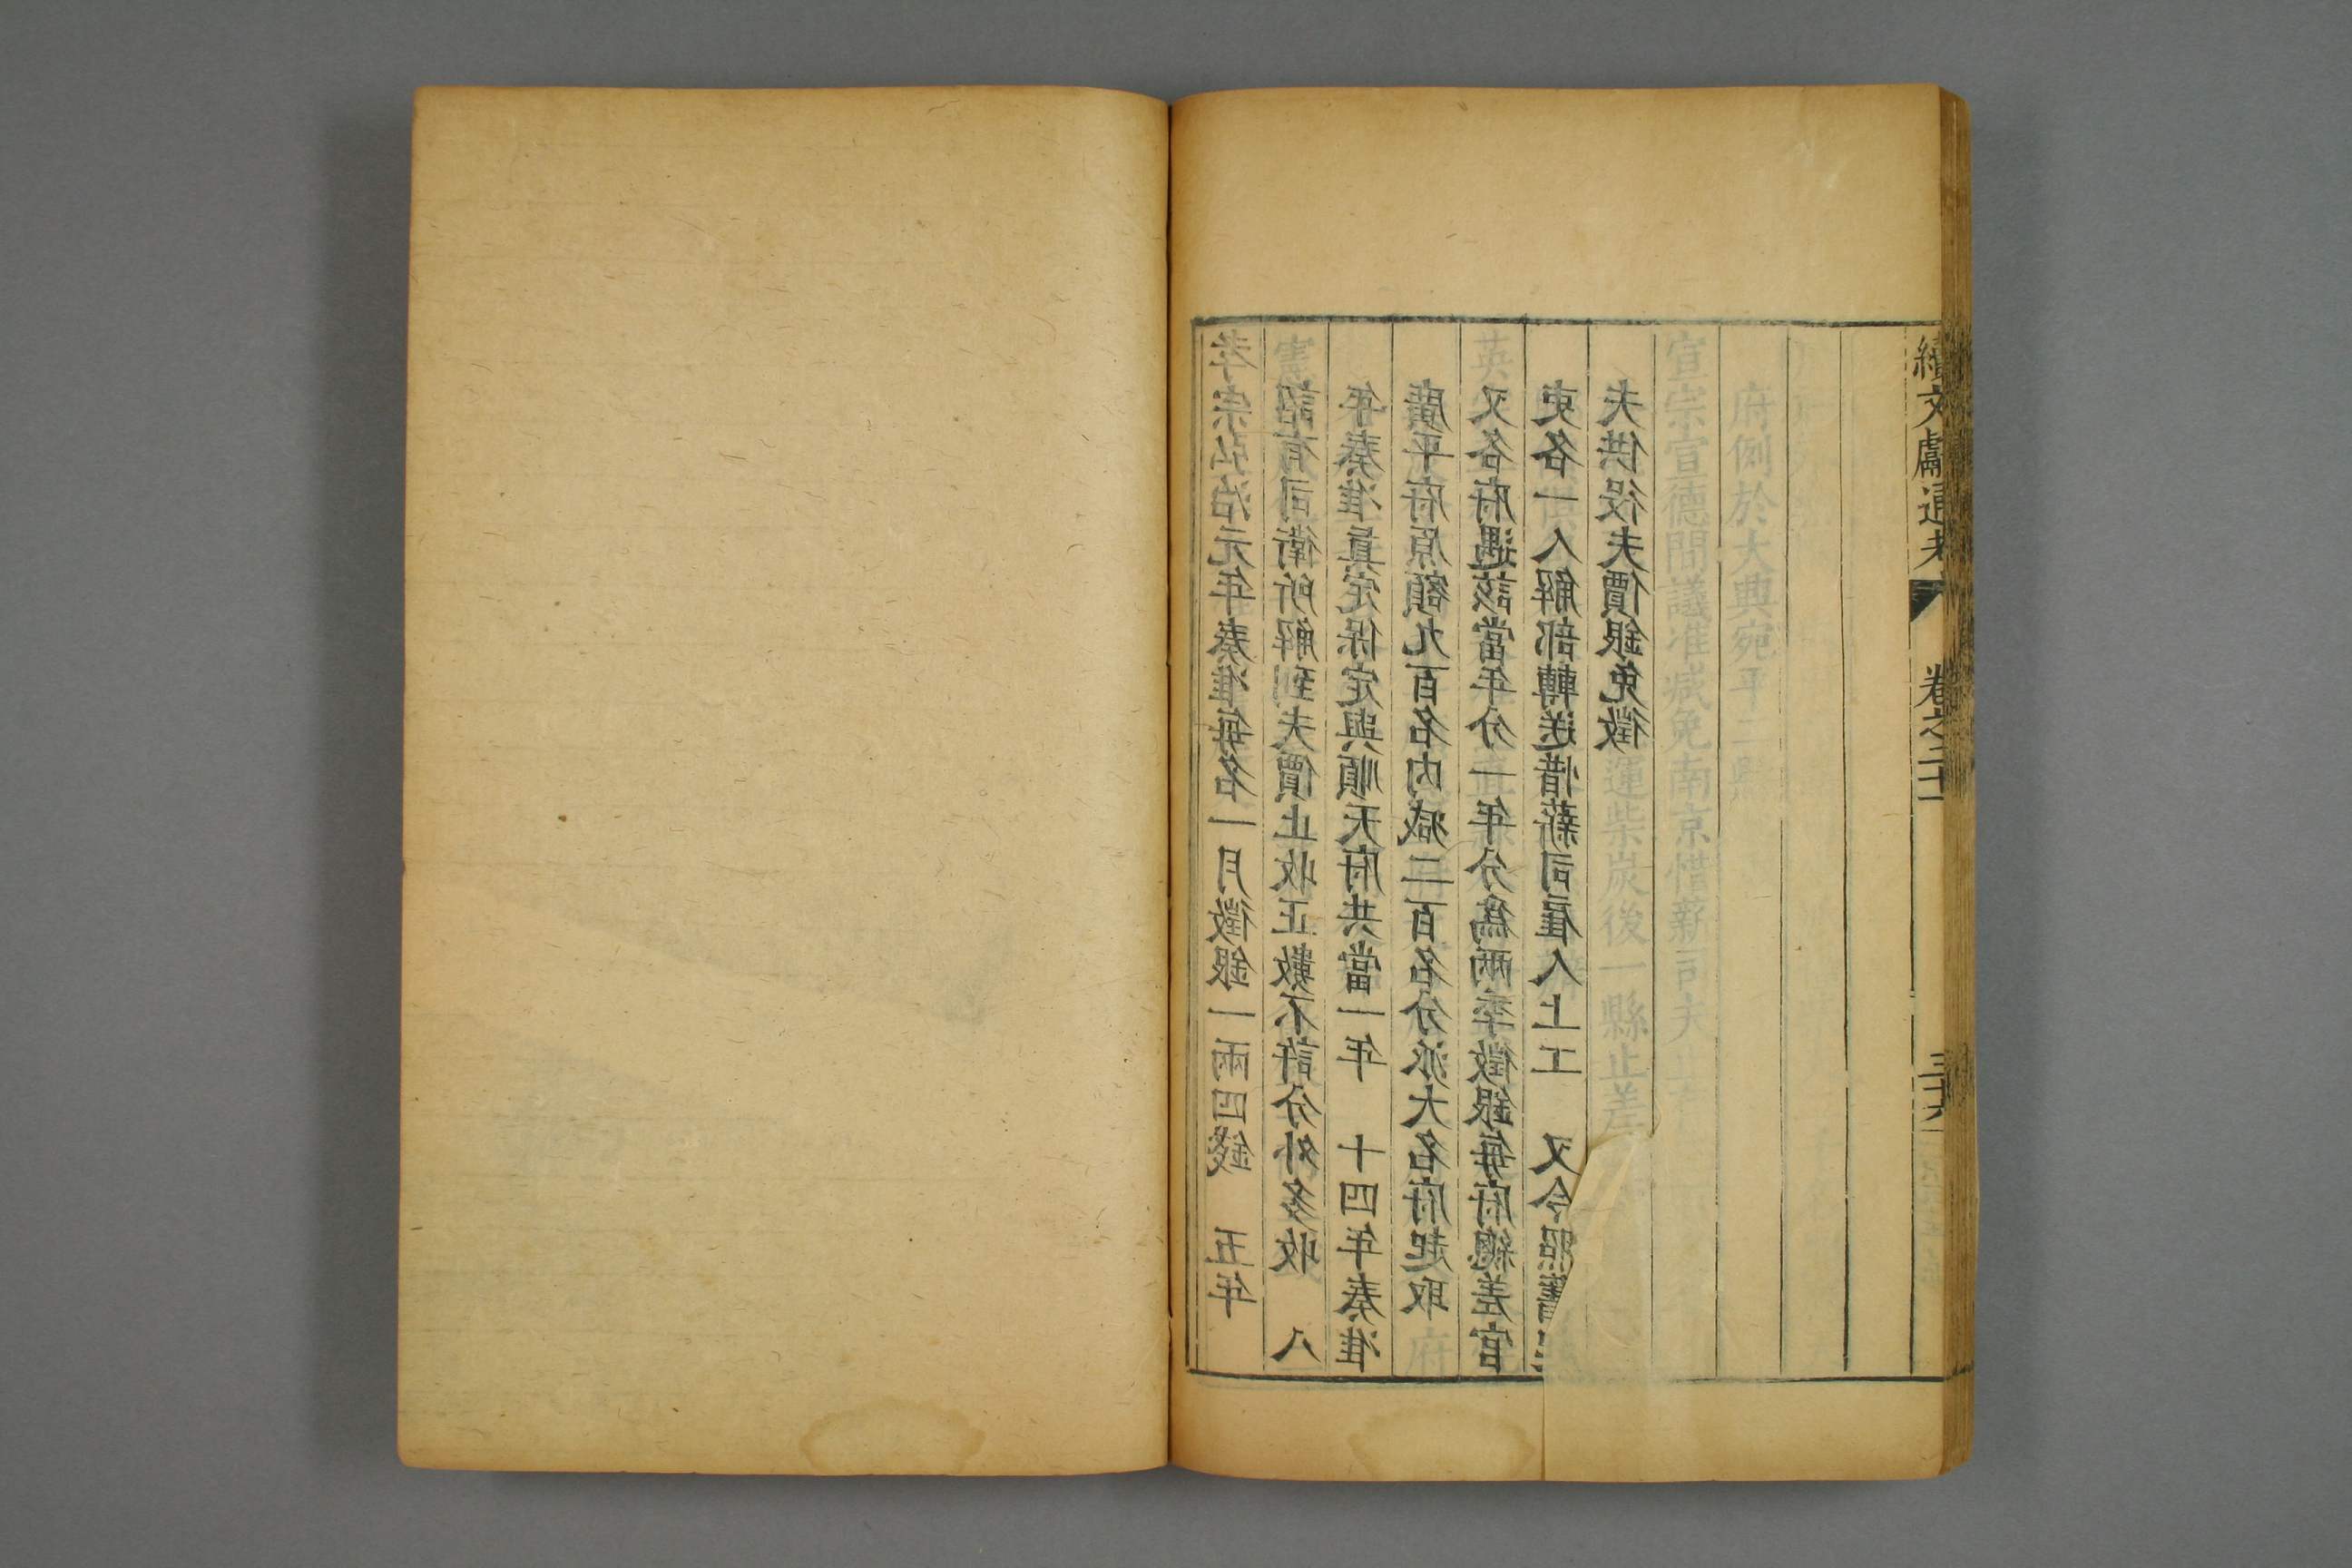 孝宗弘治元年奏准每名一月徵銀一兩四錢　五年
詔有司衛所解到夫價止收正數不許分外多收　八
年奏准眞定保定與順天府共當一年　十四年奏准
廣平府原額九百名內減二百名分派大名府起取
又各府遇該當年分一年分爲兩季徵銀每府總差官
吏各一人解部轉送惜薪司雇人上工　又令照舊
夫供役夫價銀免徵
運柴炭後一縣止差
宣宗宣德間議准減免南京惜薪司夫
府例於大興宛平二縣
續文獻通考　卷之二十一　三十六